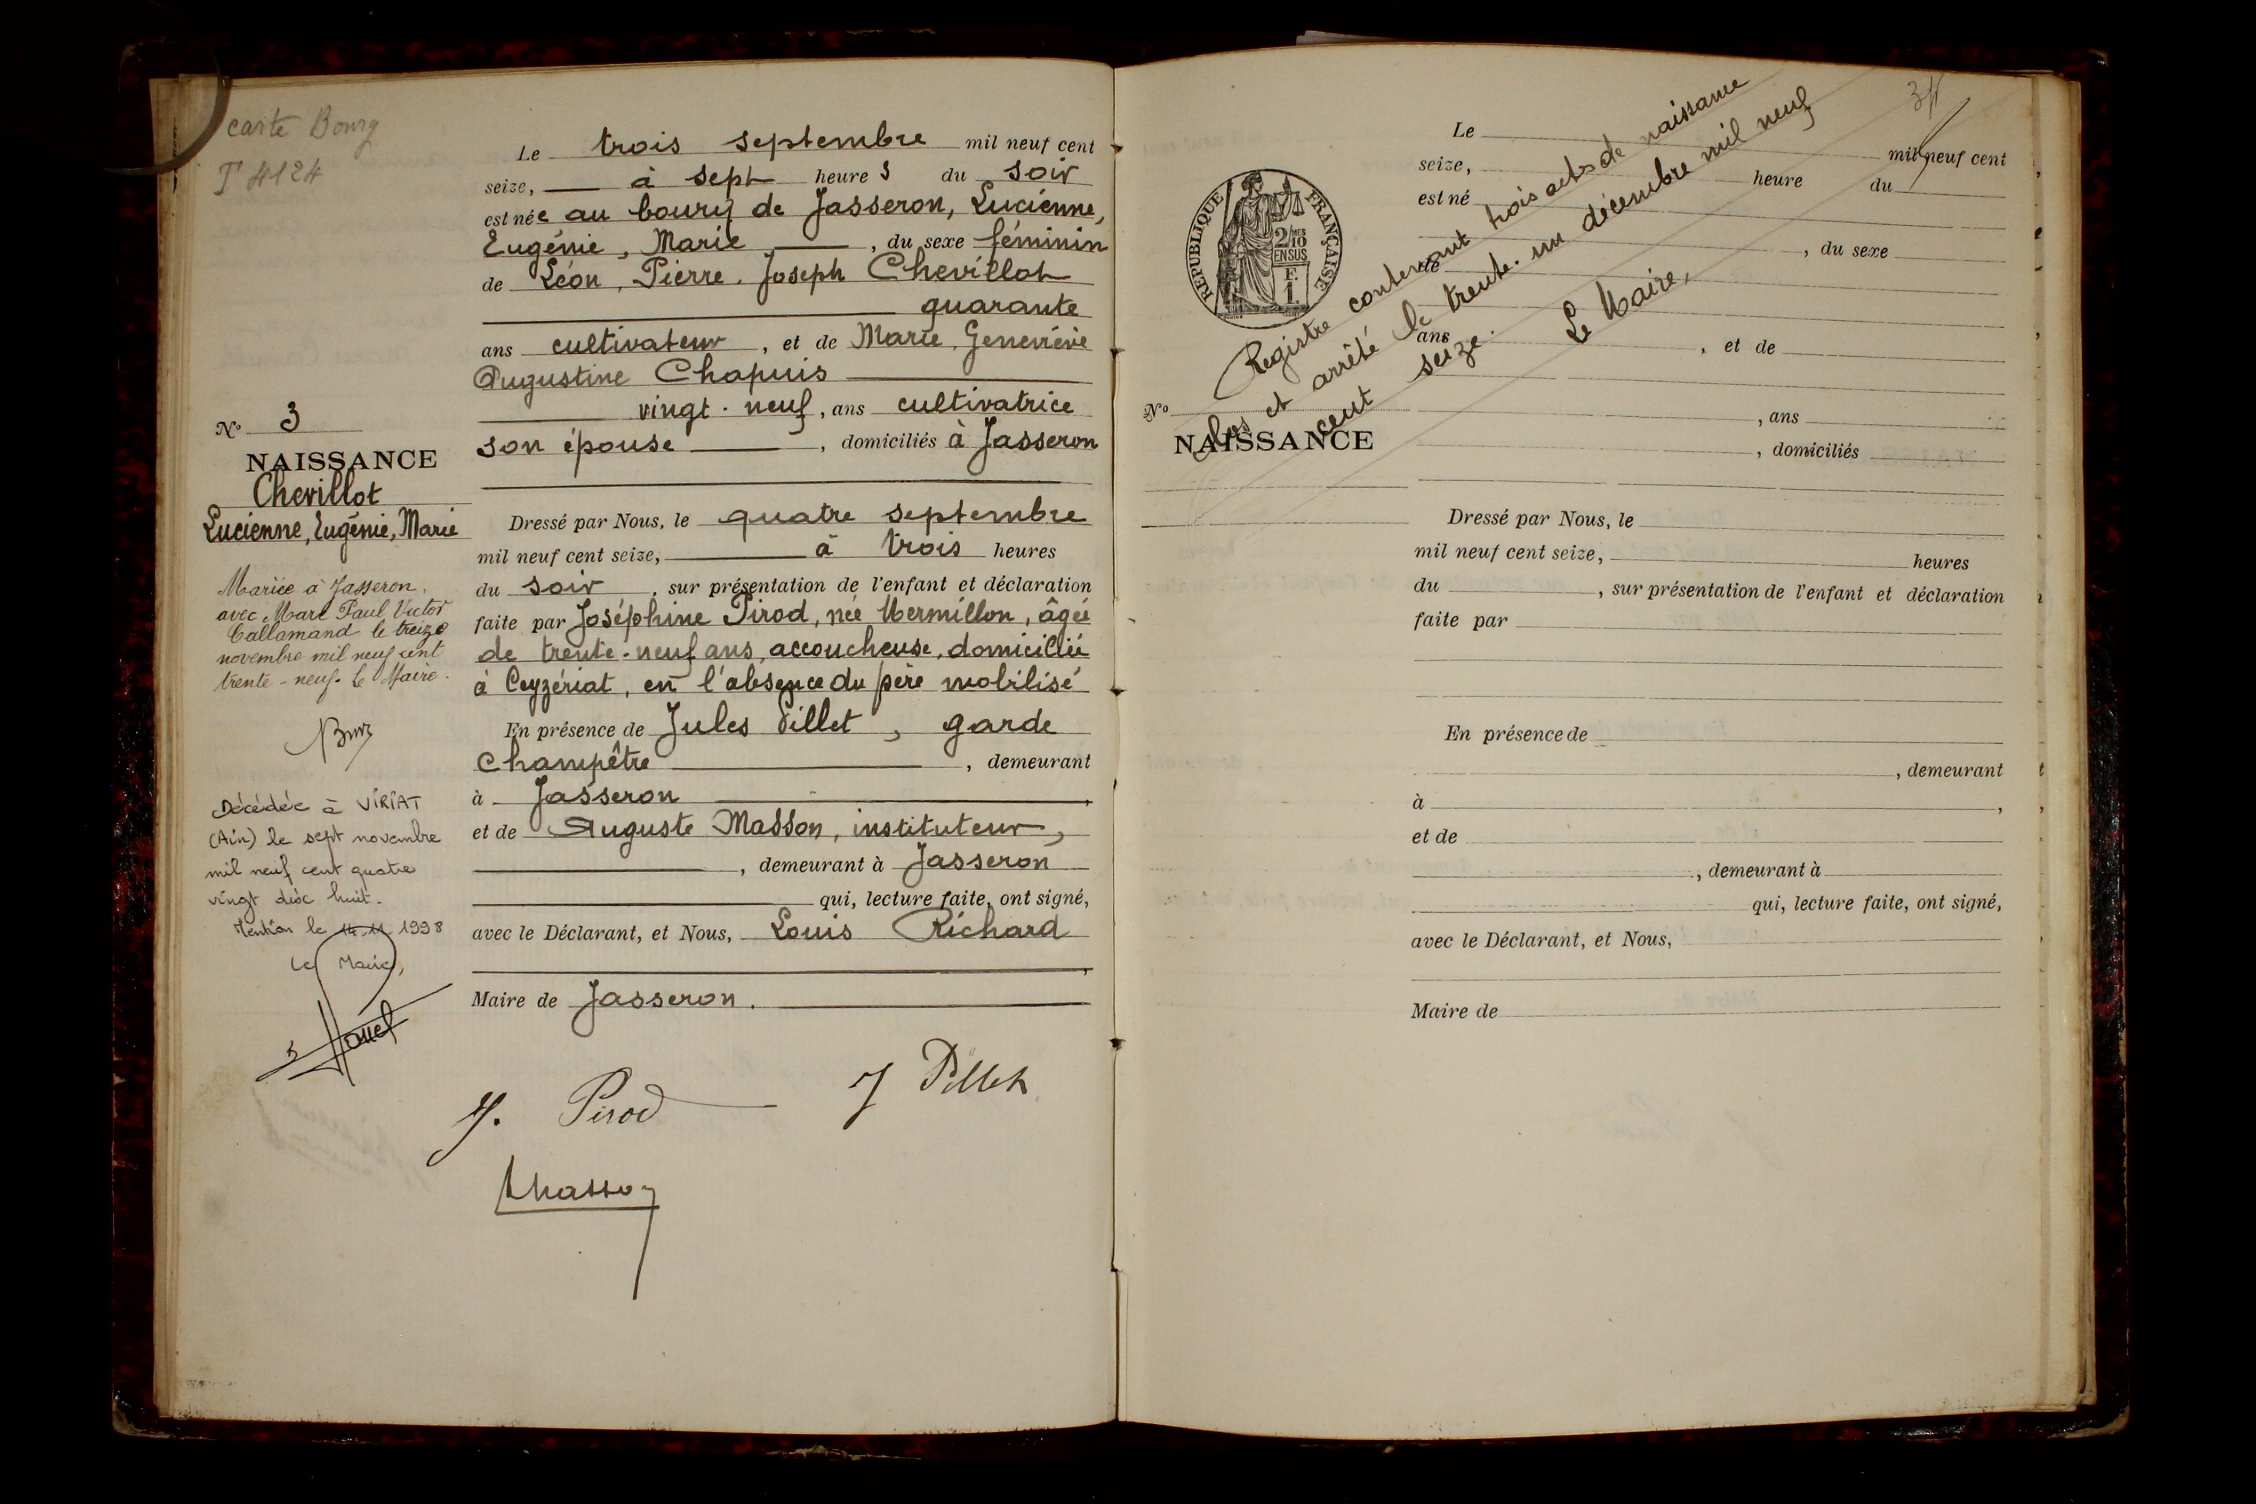 carte Bourg
T 4124
Le trois septembre mil neuf cent
seize, à sept heures du soir
est née au bourg de Jasseron, Lucienne,
Eugénie, Marie, du sexe féminin
de Léon, Pierre, Joseph Chevillot
quarante
ans cultivateur, et de Marie, Geneviève
Augustine Chapuis
vingt-neuf, ans cultivatrice
son épouse, domiciliés à Jasseron
No 3
NAISSANCE
Chevillot
Lucienne, Eugénie, Marie
Mariée à Jasseron,
avec Marc Paul Victor
Callamand le treize
novembre mil neuf cent
trente-neuf. Le Maire.
Décédée à VIRIAT
(Ain) le sept novembre
mil neuf cent quatre
vingt dix huit.
Mention le 14.11.1998
Le Maire,
Dressé par Nous, le quatre septembre
mil neuf cent seize, à trois heures
du soir, sur présentation de l'enfant et déclaration
faite par Joséphine Pirod, née Mermillon, âgée
de trente-neuf ans, accoucheuse, domiciliée
à Ceyzériat, en l'absence du père mobilisé
En présence de Jules Pillet, garde
Champêtre, demeurant
à Jasseron,
et de Auguste Masson, instituteur,
, demeurant à Jasseron
qui, lecture faite, ont signé,
avec le Déclarant, et Nous, Louis Richard
,
Maire de Jasseron.
J. Pirod
J Pillet
Masson
34
RÉPUBLIQUE FRANÇAISE
2/10 MES
EN SUS
F.
1.
Registre contenant trois actes de naissance
clos et arrêté le trente-un décembre mil neuf
cent seize. Le Maire,
Le mil neuf cent
seize, heure du
est né
, du sexe
de
ans, et de
, ans
, domiciliés
No
NAISSANCE
Dressé par Nous, le
mil neuf cent seize, heures
du, sur présentation de l'enfant et déclaration
faite par
En présence de
, demeurant
à,
et de
, demeurant à
qui, lecture faite, ont signé,
avec le Déclarant, et Nous,
Maire de